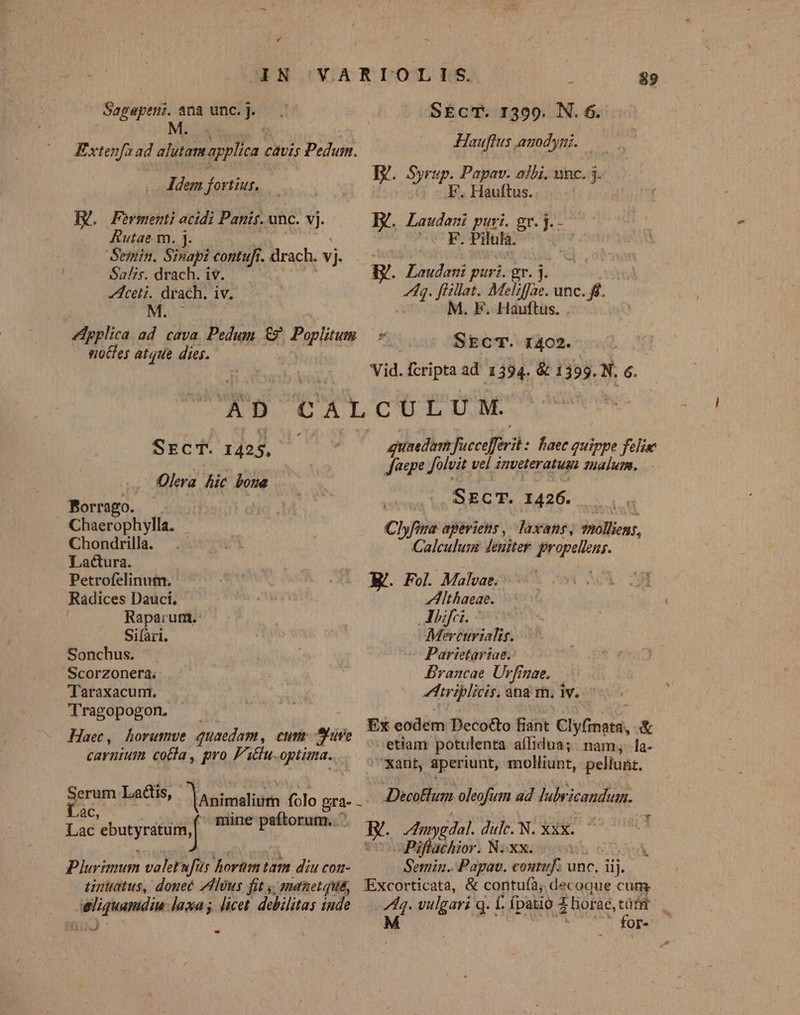 IN VARIOLIS. 89
Sagapeni. ana unc. j.
M.
Extensa ad alutam applica cavis Pedum.
Idem fortius.
℞. Fermenti acidi Panis. unc. vj.
Rutae m. j.
Semin. Sinapi contuſ. drach. vj.
Salis. drach. iv.
Aceti. drach. iv.
M.
Applica ad cava Pedum & Poplitum
noctes atque dies.
SECT. 1399. N. 6.
Hauſtus anodyni.
℞. Syrup. Papav. albi. unc. j.
F. Hauſtus.
℞. Laudani puri. gr. j.
F. Pilula.
℞. Laudani puri. gr. j.
Aq. ſtillat. Meliſſae. unc. ß.
M. F. Hauſtus.
SECT. 1402.
Vid. ſcripta ad 1394. & 1399. N. 6.
AD CALCULUM.
SECT. 1425.
Olera hic bona
Borrago.
Chaerophylla.
Chondrilla.
Lactura.
Petroſelinum.
Radices Dauci.
Raparum.
Siſari.
Sonchus.
Scorzonera.
Taraxacum.
Tragopogon.
Haec, horumve quaedam, cum Jure
carnium cocta, pro Victu optima.
Serum Lactis,
Lac,
Lac ebutyratum,
} Animalium ſolo gra-
mine paſtorum.
Plurimum valet uſus horum tam diu con-
tinuatus, donec Alvus fit, manetque,
aliquamdiu laxa; licet debilitas inde
quaedam ſucceſſerit: haec quippe felix
ſaepe ſolvit vel inveteratum malum.
SECT. 1426.
Clyſma aperiens, laxans, molliens,
Calculum leniter propellens.
℞. Fol. Malvae.
Althaeae.
Ibiſci.
Mercurialis.
Parietariae.
Brancae Urſinae.
Atriplicis. ana m. iv.
Ex eodem Decocto fiant Clyſmata, &
etiam potulenta aſſidua; nam, la-
xant, aperiunt, molliunt, pellunt.
Decoctum oleoſum ad lubricandum.
℞. Amygdal. dulc. N. xxx.
Piſtachior. N. xx.
Semin. Papav. contuſ. unc. iij.
Excorticata, & contuſa, decoque cum
Aq. vulgari q. ſ. ſpatio ½ horae, tum
M for-